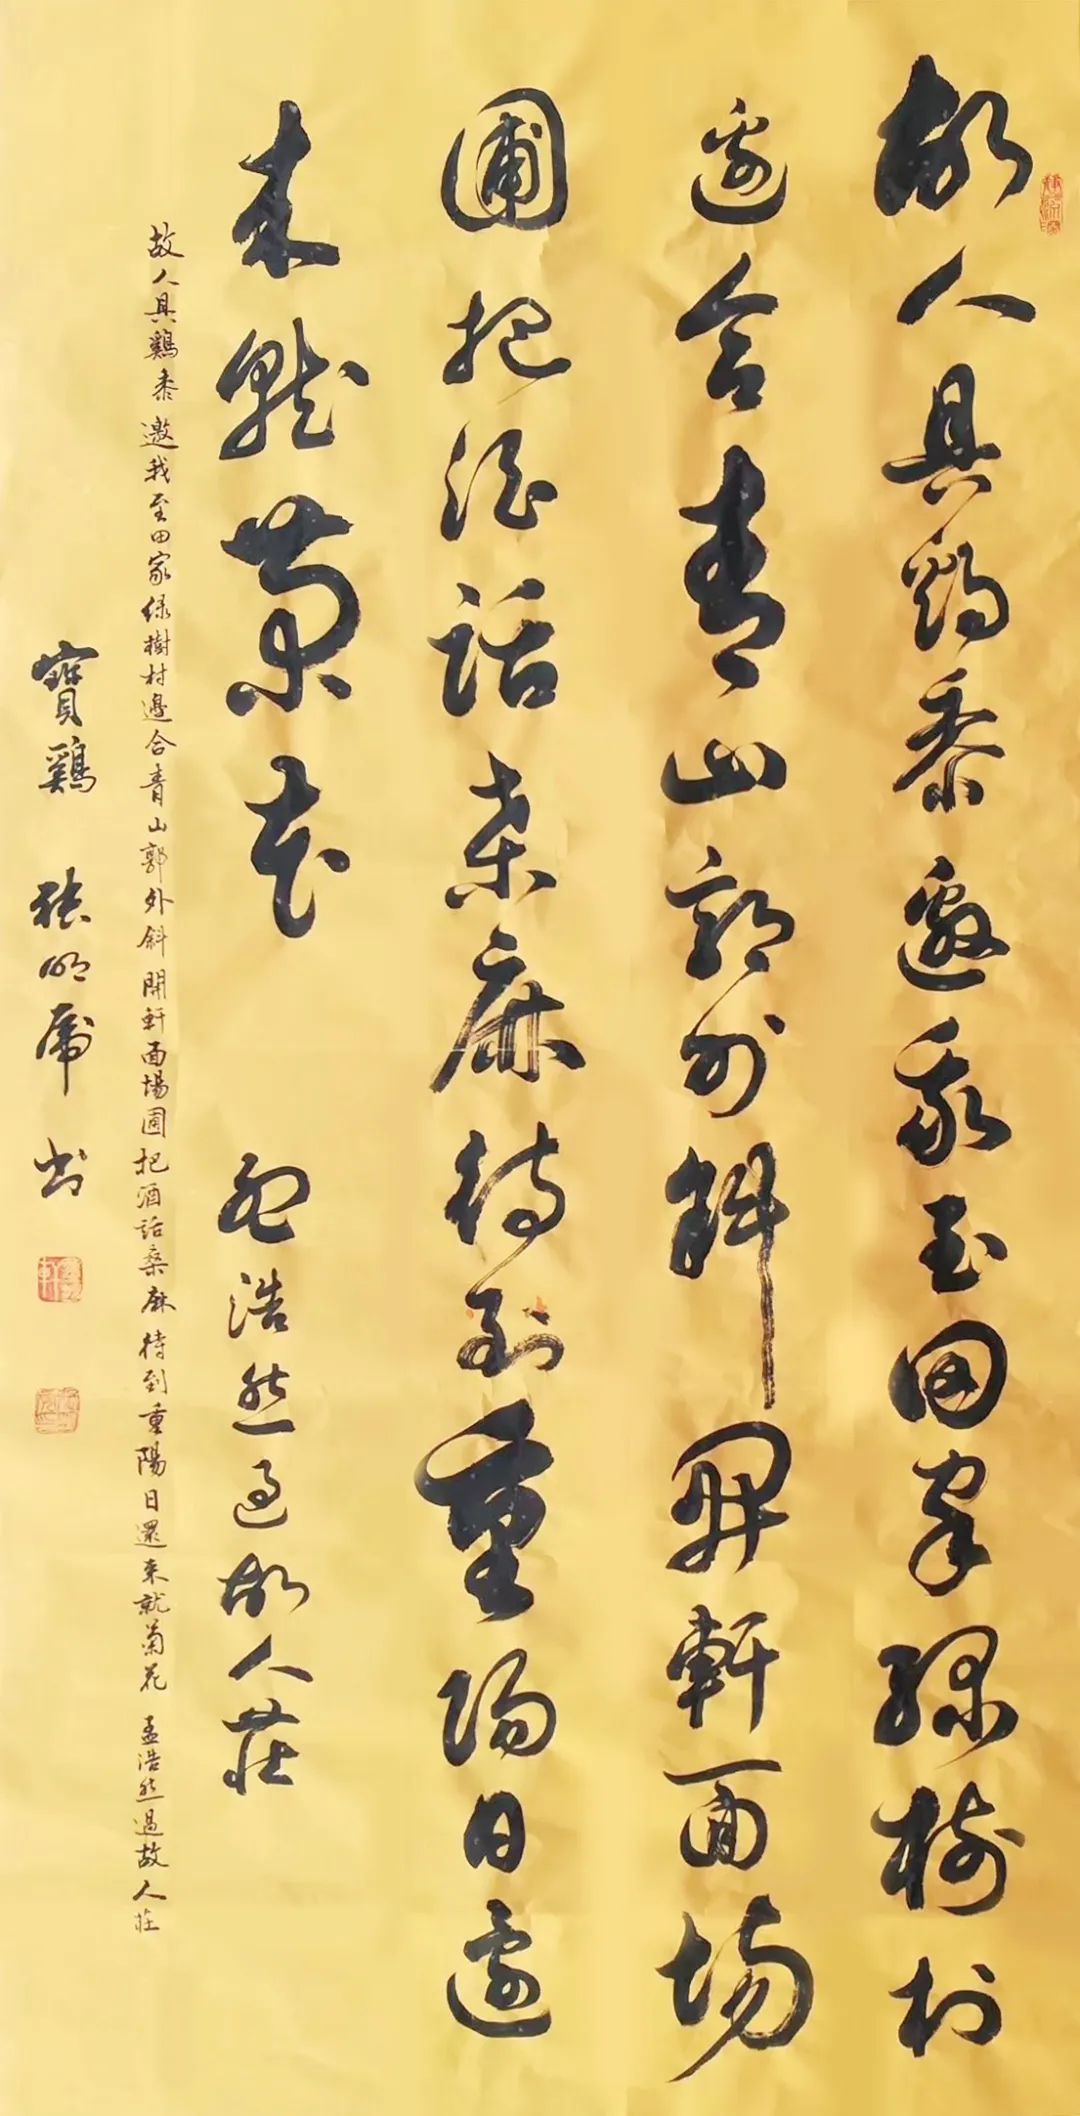 故人具鷄黍邀我至田家緑樹村
邊合青山郭外斜開軒面場
圃把酒話桑麻待到重陽日還
来就菊花 孟浩然過故人莊
故人具鷄黍邀我至田家緑樹村邊合青山郭外斜開軒面場圃把酒話桑麻待到重陽日還来就菊花 孟浩然過故人莊
寶鷄 張明虎書